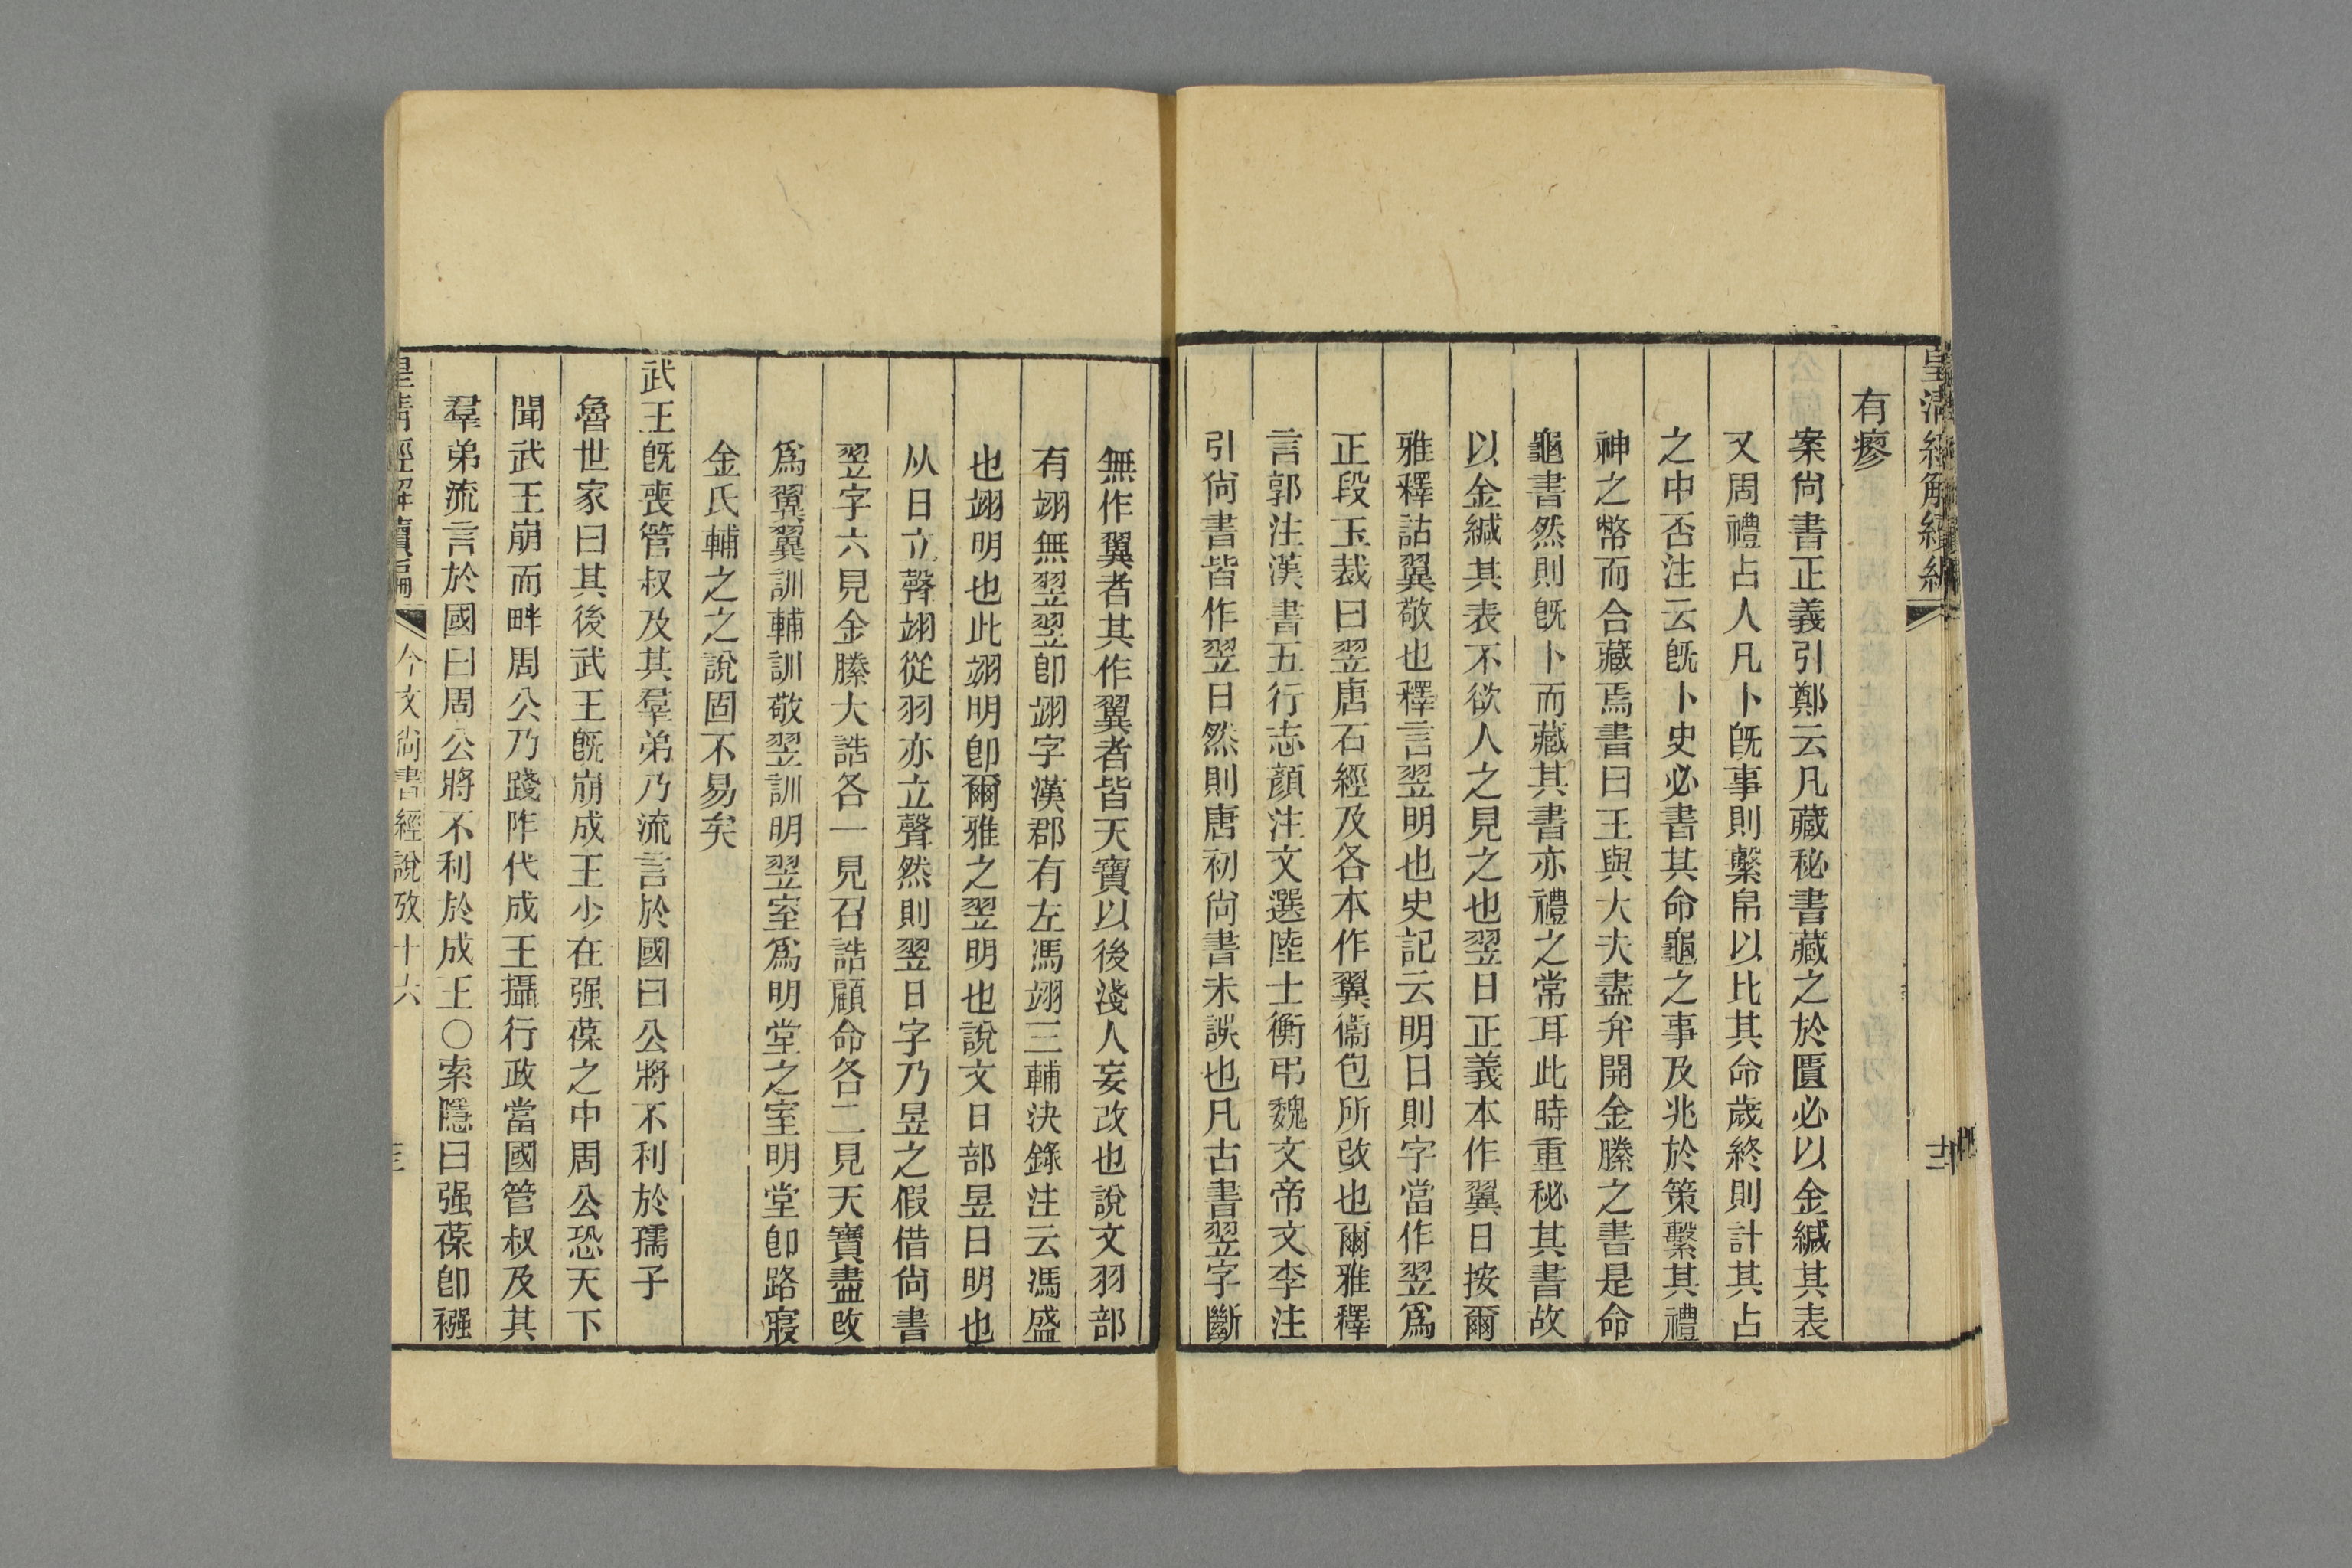 皇清經解續編
有瘳
案尙書正義引鄭云凡藏秘書藏之於匱必以金緘其表
又周禮占人凡卜旣事則繫帛以比其命歲終則計其占
之中否注云旣卜史必書其命龜之事及兆於策繫其禮
神之幣而合藏焉書曰王與大夫盡弁開金縢之書是命
龜書然則旣卜而藏其書亦禮之常耳此時重秘其書故
以金緘其表不欲人之見之也翌日正義本作翼日按爾
雅釋詁翼敬也釋言翌明也史記云明日則字當作翌爲
正段玉裁曰翌唐石經及各本作翼衞包所改也爾雅釋
言郭注漢書五行志顏注文選陸士衡弔魏文帝文李注
引尙書皆作翌日然則唐初尙書未誤也凡古書翌字斷
無作翼者其作翼者皆天寶以後淺人妄改也說文羽部
有翊無翌翌卽翊字漢郡有左馮翊三輔決錄注云馮盛
也翊明也此翊明卽爾雅之翌明也說文日部昱日明也
从日立聲翊從羽亦立聲然則翌日字乃昱之假借尙書
翌字六見金縢大誥各一見召誥顧命各二見天寶盡改
爲翼翼訓輔訓敬翌訓明翌室爲明堂之室明堂卽路寢
金氏輔之之說固不易矣
武王旣喪管叔及其羣弟乃流言於國曰公將不利於孺子
魯世家曰其後武王旣崩成王少在强葆之中周公恐天下
聞武王崩而畔周公乃踐阼代成王攝行政當國管叔及其
羣弟流言於國曰周公將不利於成王○索隱曰强葆卽襁
皇淸經解續編 今文尙書經說攷十六